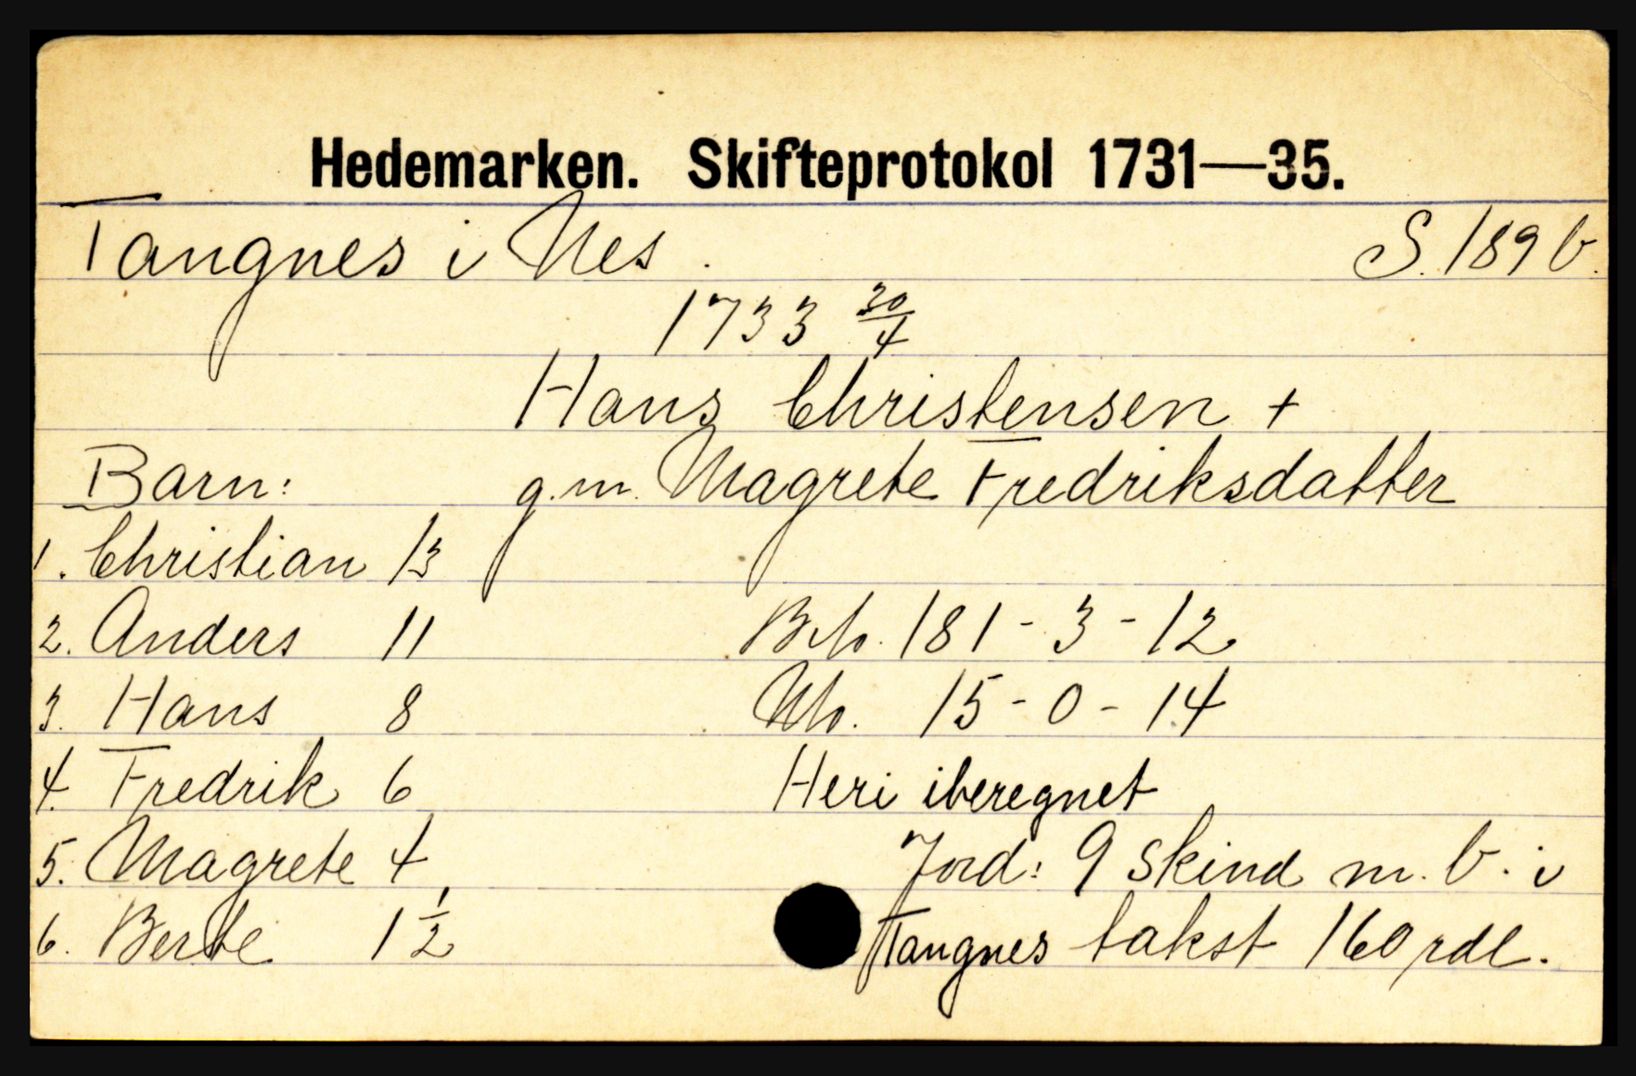 Hedemarken. Skifteprotokol 1731—35.
Tangnes i Nes. S. 189 b.
1733 30/4
Hans Christensen +
Barn: g.m. Magrete Fredriksdatter
1. Christian 13
2. Anders 11 Bto. 181-3-12
3. Hans 8 Nto. 15-0-14
4. Fredrik 6 Heri iberegnet
5. Magrete 4 Jord: 9 skind m. b. i
6. Berte 1 1/2 Tangnes takst 160 rdl.